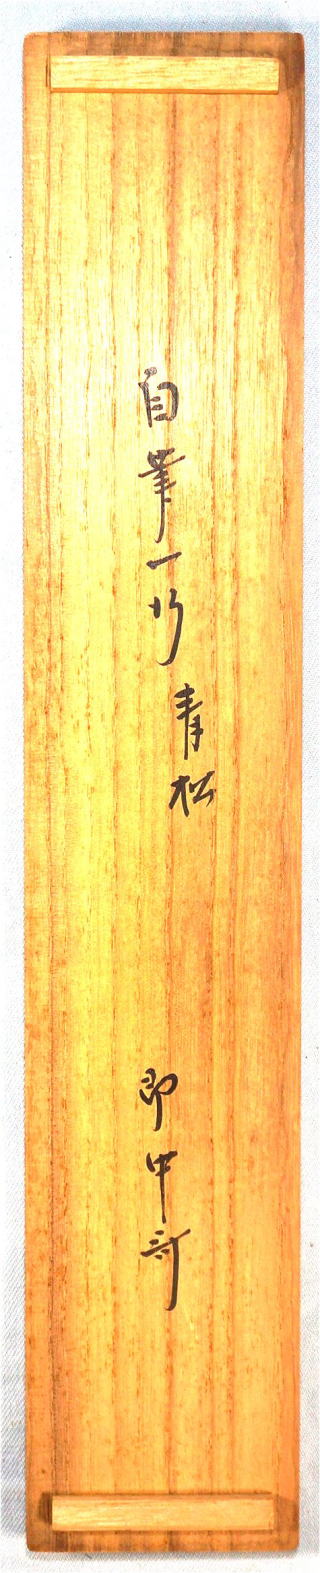 自筆一行
青松
即中斎